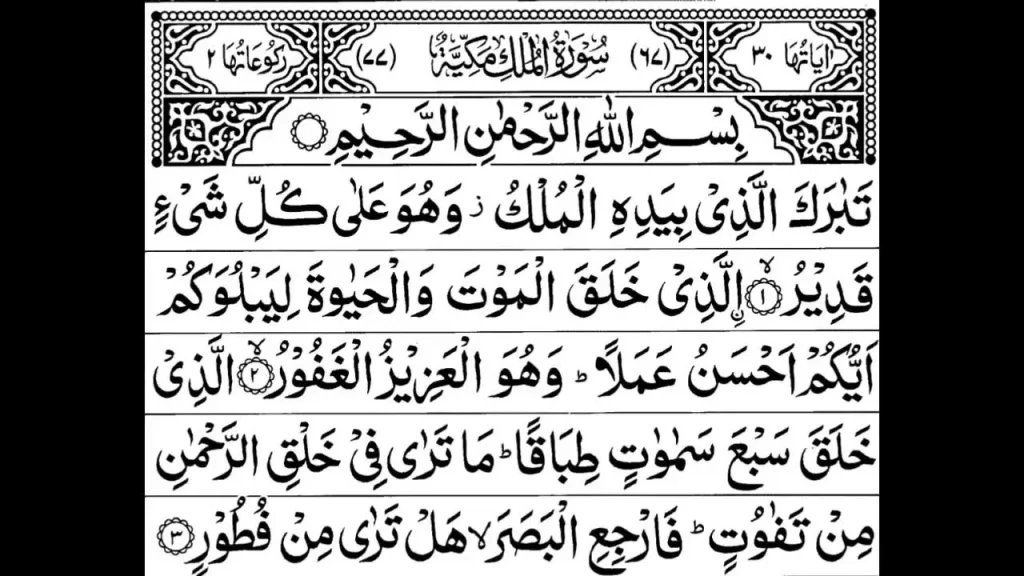 اٰیَاتُهَا ٣٠ (٦٧) سُوْرَةُ الْمُلْكِ مَكِّیَّةٌ (٧٧) رُكُوْعَاتُهَا ٢
بِسْمِ اللّٰهِ الرَّحْمٰنِ الرَّحِیْمِ
تَبٰرَكَ الَّذِیْ بِیَدِهِ الْمُلْكُ ز وَهُوَ عَلٰی كُلِّ شَیْءٍ
قَدِیْرُ ۙ﴿١﴾ ِۨالَّذِیْ خَلَقَ الْمَوْتَ وَالْحَیٰوةَ لِیَبْلُوَكُمْ
اَیُّكُمْ اَحْسَنُ عَمَلًا ؕ وَهُوَ الْعَزِیْزُ الْغَفُوْرُ ۙ﴿٢﴾ الَّذِیْ
خَلَقَ سَبْعَ سَمٰوٰتٍ طِبَاقًا ؕ مَا تَرٰی فِیْ خَلْقِ الرَّحْمٰنِ
مِنْ تَفٰوُتٍ ؕ فَارْجِعِ الْبَصَرَ ۙ هَلْ تَرٰی مِنْ فُطُوْرٍ ﴿٣﴾